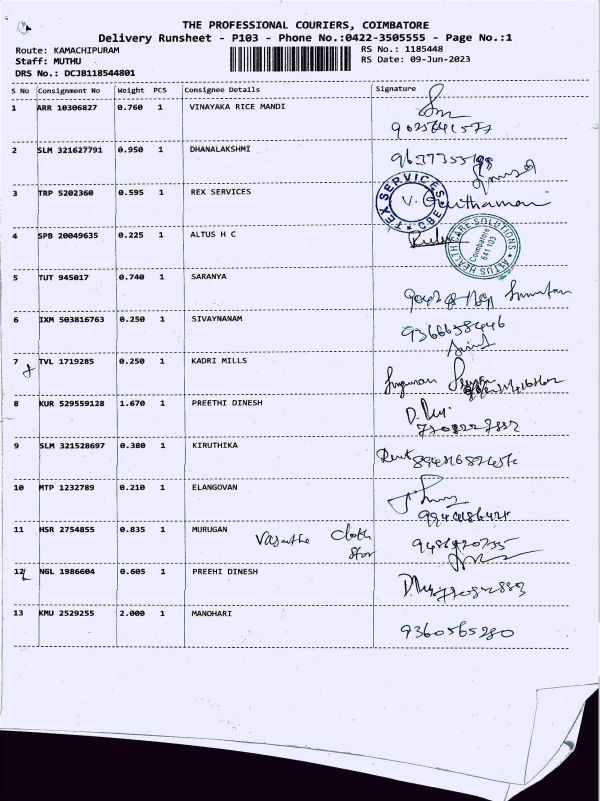 THE PROFESSIONAL COURIERS, COIMBATORE
Delivery Runsheet - P103 - Phone No.:0422-3505555 - Page No.:1
Route: KAMACHIPURAM RS No.: 1185448
Staff: MUTHU RS Date: 09-Jun-2023
DRS No.: DCJB118544801
S No Consignment No Weight PCS Consignee Details Signature
1 ARR 10306827 0.760 1 VINAYAKA RICE MANDI
2 SLM 321627791 0.950 1 DHANALAKSHMI
3 TRP 5202360 0.595 1 REX SERVICES
TEX SERVICES CBE
4 SPB 20049635 0.225 1 ALTUS H C
ALTUS HEALTH CARE SOLUTIONS Coimbatore 641 103
5 TUT 945017 0.740 1 SARANYA
6 IXM 503816763 0.250 1 SIVAYNANAM
9366658446
7 TVL 1719285 0.250 1 KADRI MILLS
8 KUR 529559128 1.670 1 PREETHI DINESH
9 SLM 321528697 0.380 1 KIRUTHIKA
10 MTP 1232789 0.210 1 ELANGOVAN
11 HSR 2754855 0.835 1 MURUGAN
12 NGL 1986604 0.605 1 PREEHI DINESH
13 KMU 2529255 2.000 1 MANOHARI
9360565280